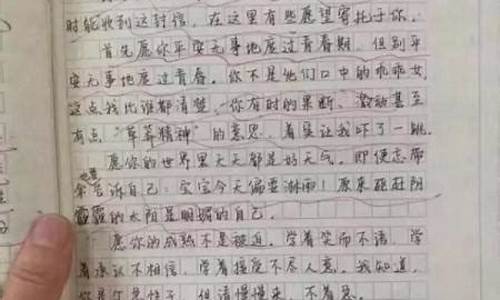 时能收到这封信，在这里有些愿望寄托于你，
首先愿你平安无事地度过青春期，但别平
安无事地度过青春。你不是他们口中的乖乖女，
这点我比谁都清楚，你有时的果断、激动甚至
有点“草莽精神”的意思，着实让我吓了一跳。
愿你的世界里天天都是好天气。即便忘带
伞告诉自己：实宝今天偏要淋雨！原来驱赶阴
霾的太阳是明媚的自己。
愿你的成熟不是被迫，学着笑而不语，学
着承认不相信，学着接受不尽人意。我知道，
你是个急性子，但请慢慢来，不着急。